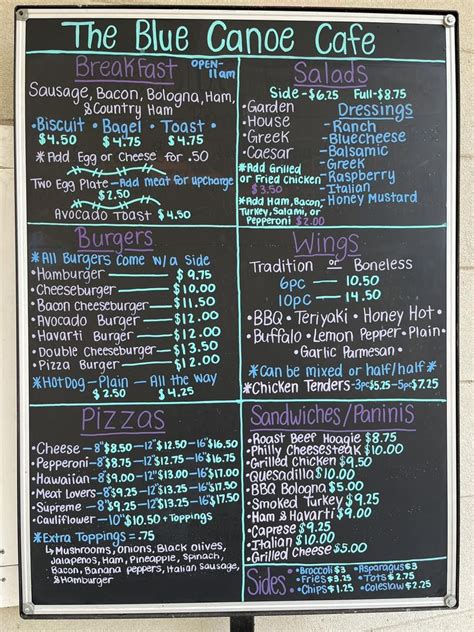 The Blue Canoe Cafe
Breakfast
OPEN-
11am
Sausage, Bacon, Bologna, Ham,
& Country Ham
• Biscuit • Bagel • Toast •
$4.50 $4.75 $4.75
*Add Egg or Cheese for .50
Two Egg Plate — Add meat for upcharge
$2.50
Avocado Toast $4.50
Salads
Side - $6.25 Full - $8.75
• Garden
• House
• Greek
• Caesar
*Add Grilled
or Fried Chicken
$3.50
*Add Ham, Bacon,
Turkey, Salami, or
Pepperoni $2.00
Dressings
- Ranch
- Bluecheese
- Balsamic
- Greek
- Raspberry
- Italian
- Honey Mustard
Burgers
*All Burgers come w/a side
• Hamburger — $9.75
• Cheeseburger — $10.00
• Bacon Cheeseburger — $11.50
• Avocado Burger — $12.00
• Havarti Burger — $12.00
• Double Cheeseburger — $13.50
• Pizza Burger — $12.00
*Hot Dog - Plain — All the Way
$2.50 $4.25
Wings
Tradition or Boneless
6pc — 10.50
10pc — 14.50
• BBQ • Teriyaki • Honey Hot •
• Buffalo • Lemon Pepper • Plain •
• Garlic Parmesan •
*Can be mixed or half/half*
*Chicken Tenders - 3pc $5.25 - 5pc $7.25
Pizzas
• Cheese — 8" $8.50 — 12" $12.50 — 16" $16.50
• Pepperoni — 8" $8.75 — 12" $12.75 — 16" $16.75
• Hawaiian — 8" $9.00 — 12" $13.00 — 16" $17.00
• Meat Lovers — 8" $9.25 — 12" $13.25 — 16" $17.50
• Supreme — 8" $9.25 — 12" $13.25 — 16" $17.50
• Cauliflower — 10" $10.50 + Toppings
*Extra Toppings = .75
↳ Mushrooms, Onions, Black Olives,
Jalapenos, Ham, Pineapple, Spinach,
Bacon, Banana peppers, Italian Sausage,
& Hamburger
Sandwiches/Paninis
• Roast Beef Hoagie $8.75
• Philly Cheesesteak $10.00
• Grilled Chicken $9.50
• Quesadilla $10.00
• BBQ Bologna $5.00
• Smoked Turkey $9.25
• Ham & Havarti $9.00
• Caprese $9.25
• Italian $10.00
• Grilled Cheese $5.00
Sides:
• Broccoli $3 • Asparagus $3
• Fries $3.25 • Tots $2.75
• Chips $1.25 • Coleslaw $2.25